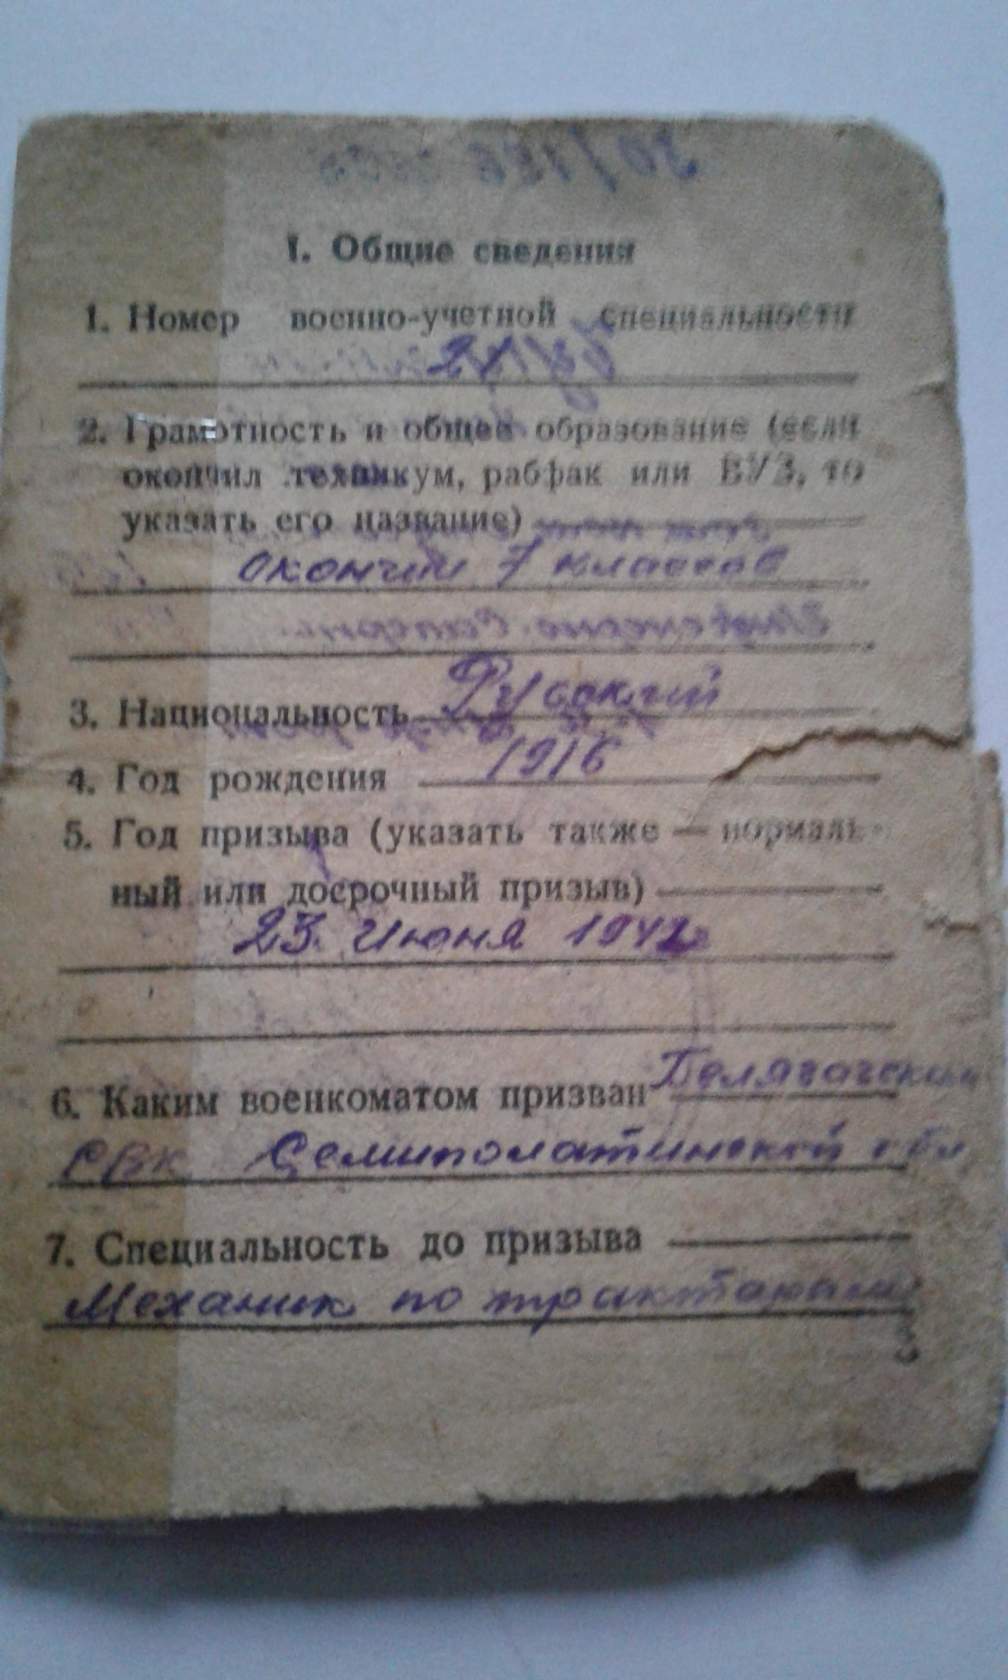 I. Общие сведения
1. Номер военно-учетной специальности
2. Грамотность и общее образование (если
окончил техникум, рабфак или ВУЗ, то
указать его название)
окончил 7 классов
3. Национальность Русский
4. Год рождения 1916
5. Год призыва (указать также — нормаль-
ный или досрочный призыв)
23. Июня 1942
6. Каким военкоматом призван Белягачским
РВК Семиполатинской обл
7. Специальность до призыва
Механик по тракторам